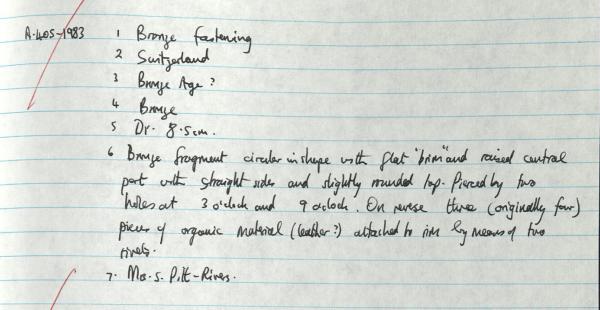 A.405-1983 1 Bronze fastening
2 Switzerland
3 Bronze Age?
4 Bronze
5 Dr. 8.5cm.
6 Bronze fragment circular in shape with flat "brim" and raised central
part with straight sides and slightly rounded top. Pierced by two
holes at 3 o'clock and 9 o'clock. On reverse three (originally four)
pieces of organic material (leather?) attached to rim by means of two
rivets.
7. Mrs. S. Pitt-Rivers.